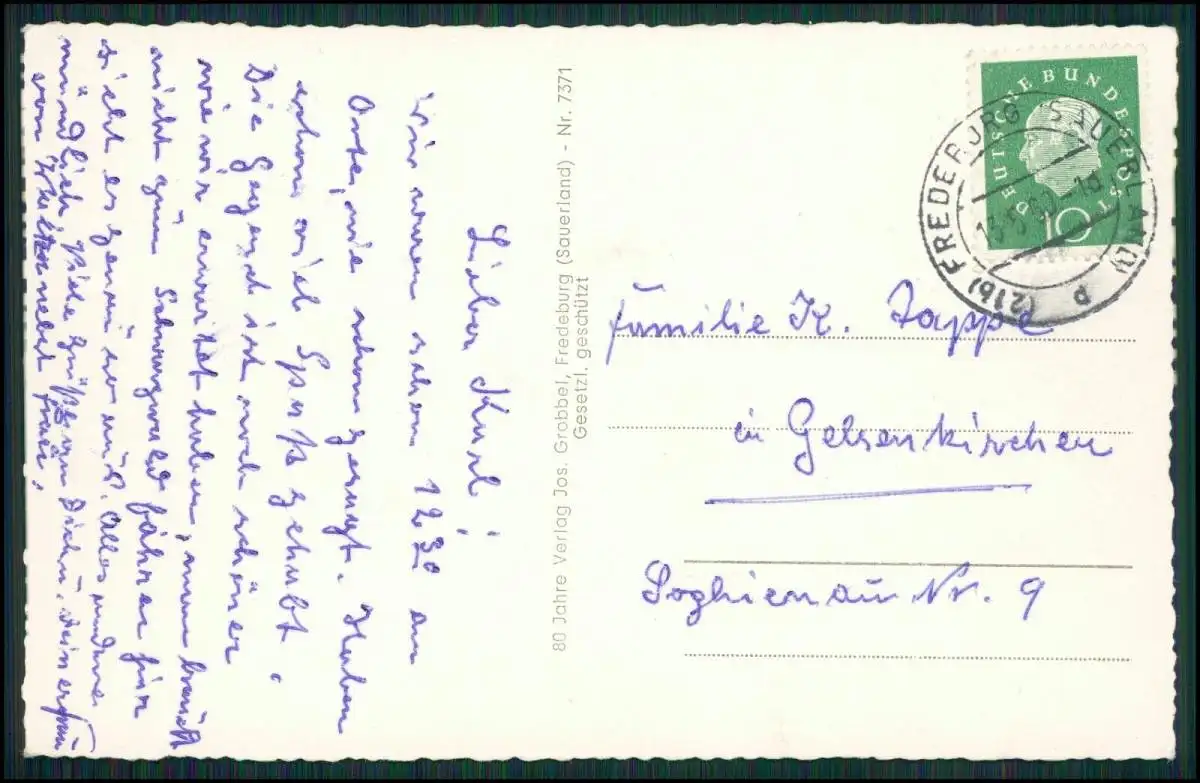 Lieber Karl!
Wir waren schon 12³⁰ am
Orte, wie schon gesagt. Haben
schon viel Spaß gehabt.
Die Gegend ist noch schöner
wie wir erwartet haben, man braucht
nicht zum Schwarzwald fahren hier
sieht es genau so aus. Alles andere
mündlich. Viele Grüße an Dich u. Deine Frau
von Walter nebst Frau.
80 Jahre Verlag Jos. Grobbel, Fredeburg (Sauerland) - Nr. 7371
Gesetzl. geschützt
DEUTSCHE BUNDESPOST
10
(21b) FREDEBURG (SAUERLAND)
13.5.60.-18
p
Familie K. Zappe
in Gelsenkirchen
Sophienau Nr. 9